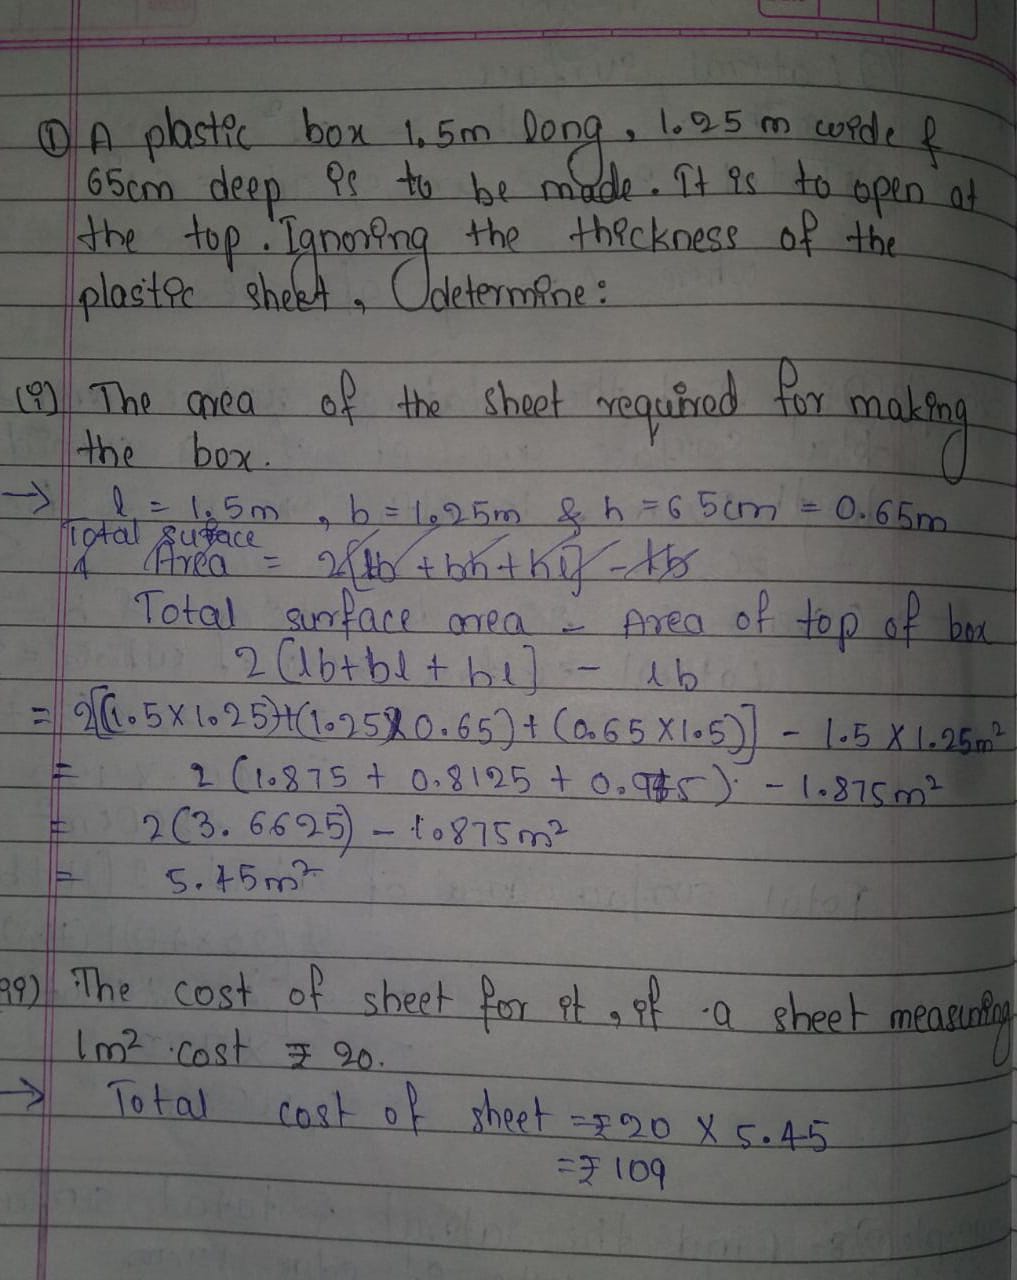 ① A plastic box 1.5m long, 1.25 m wide &
65cm deep is to be made. It is to open at
the top. Ignoring the thickness of the
plastic sheet, determine:
(i) The area of the sheet required for making
the box.
→ l = 1.5m, b = 1.25m & h = 65cm = 0.65m
Total surface
Area = 2[lb + bh + hl] - lb
Total surface area - Area of top of box
2[lb+bl + hl] - lb
= 2[(1.5×1.25)+(1.25×0.65)+(0.65×1.5)] - 1.5 × 1.25m²
= 2(1.875 + 0.8125 + 0.975) - 1.875m²
= 2(3.6625) - 1.875m²
= 5.45m²
ii) The cost of sheet for it, if a sheet measuring
1m² cost ₹ 20.
→ Total cost of sheet = ₹20 × 5.45
= ₹ 109